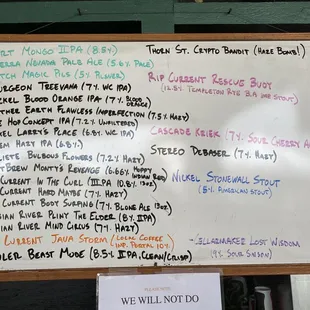 ORT MONGO IIPA (8.5%)
ERRA NEVADA PALE ALE (5.6% PALE)
TCH MAGIC PILS (5% PILSNER)
URGEON TREEVANA (7% WC IPA)
CKEL BLOOD ORANGE IPA (7% BLOOD ORANGE)
THER EARTH FLAWLESS IMPERFECTION (7.5% HAZY)
HOP CONCEPT IPA (7.2% UNFILTERED)
KEL LARRY'S PLACE (6.8% WC IPA)
EM HAZY IPA (6.8%)
LISTE BULBOUS FLOWERS (7.2% HAZY)
TBREW MONTY'S REVENGE (6.66% HOPPY INDIAN RED)
CURRENT IN THE CURL (IIIPA 10.8% 13oz)
CURRENT HARD MAYBE (7% HAZY)
CURRENT BODY SURFING (7% BLONDE ALE 13oz)
SIAN RIVER PLINY THE ELDER (8% IIPA)
IAN RIVER MIND CIRCUS (7% HAZY)
CURRENT JAVA STORM (LOCAL COFFEE IMP. PORTER 10%)
LER BEAST MODE (8.5% IIPA, CLEAN/CRISP)
THORN ST. CRYPTO BANDIT (HAZE BOMB!)
RIP CURRENT RESCUE BUOY
(12.5% TEMPLETON RYE B.A. STOUT)
CASCADE KRIEK (7% SOUR CHERRY A
STEREO DEBASER (7% HAZY)
NICKEL STONEWALL STOUT
(5% AMERICAN STOUT)
ELLARMAKER LOST WISDOM
(7% SOUR SAISON)
WE WILL NOT DO